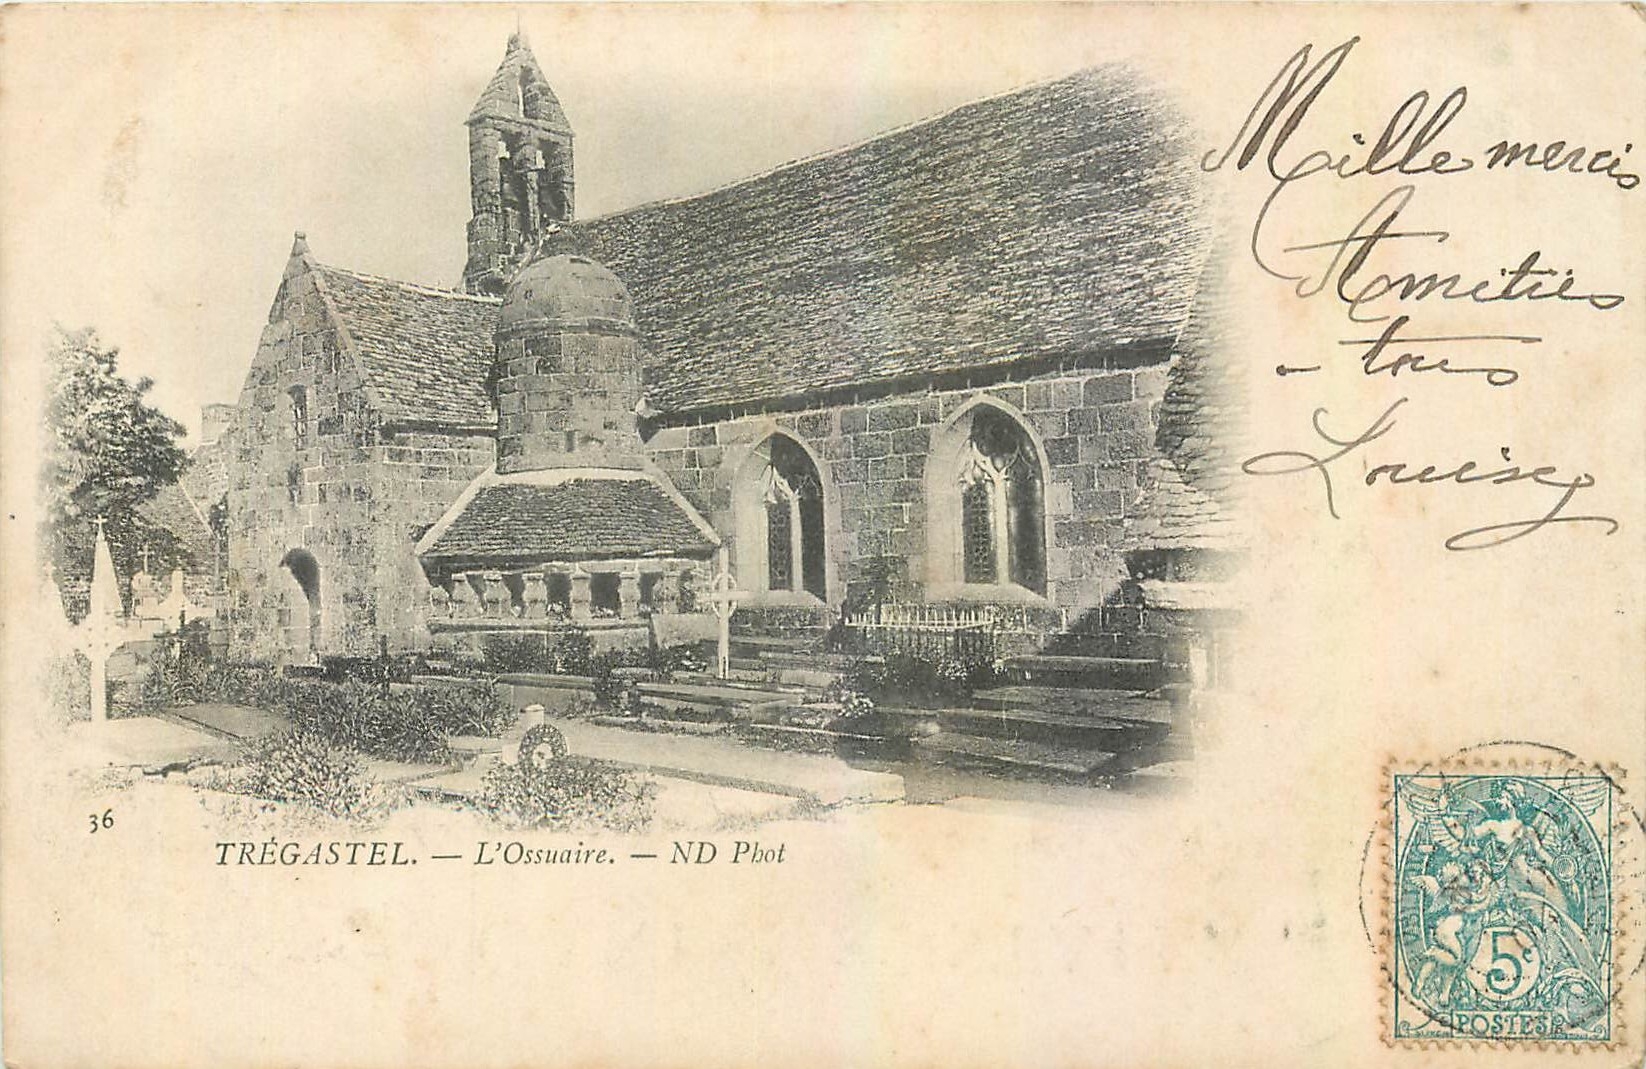 Mille mercis
Amitiés
- tous
Louise
36
TRÉGASTEL. — L'Ossuaire. — ND Phot
5c
POSTES